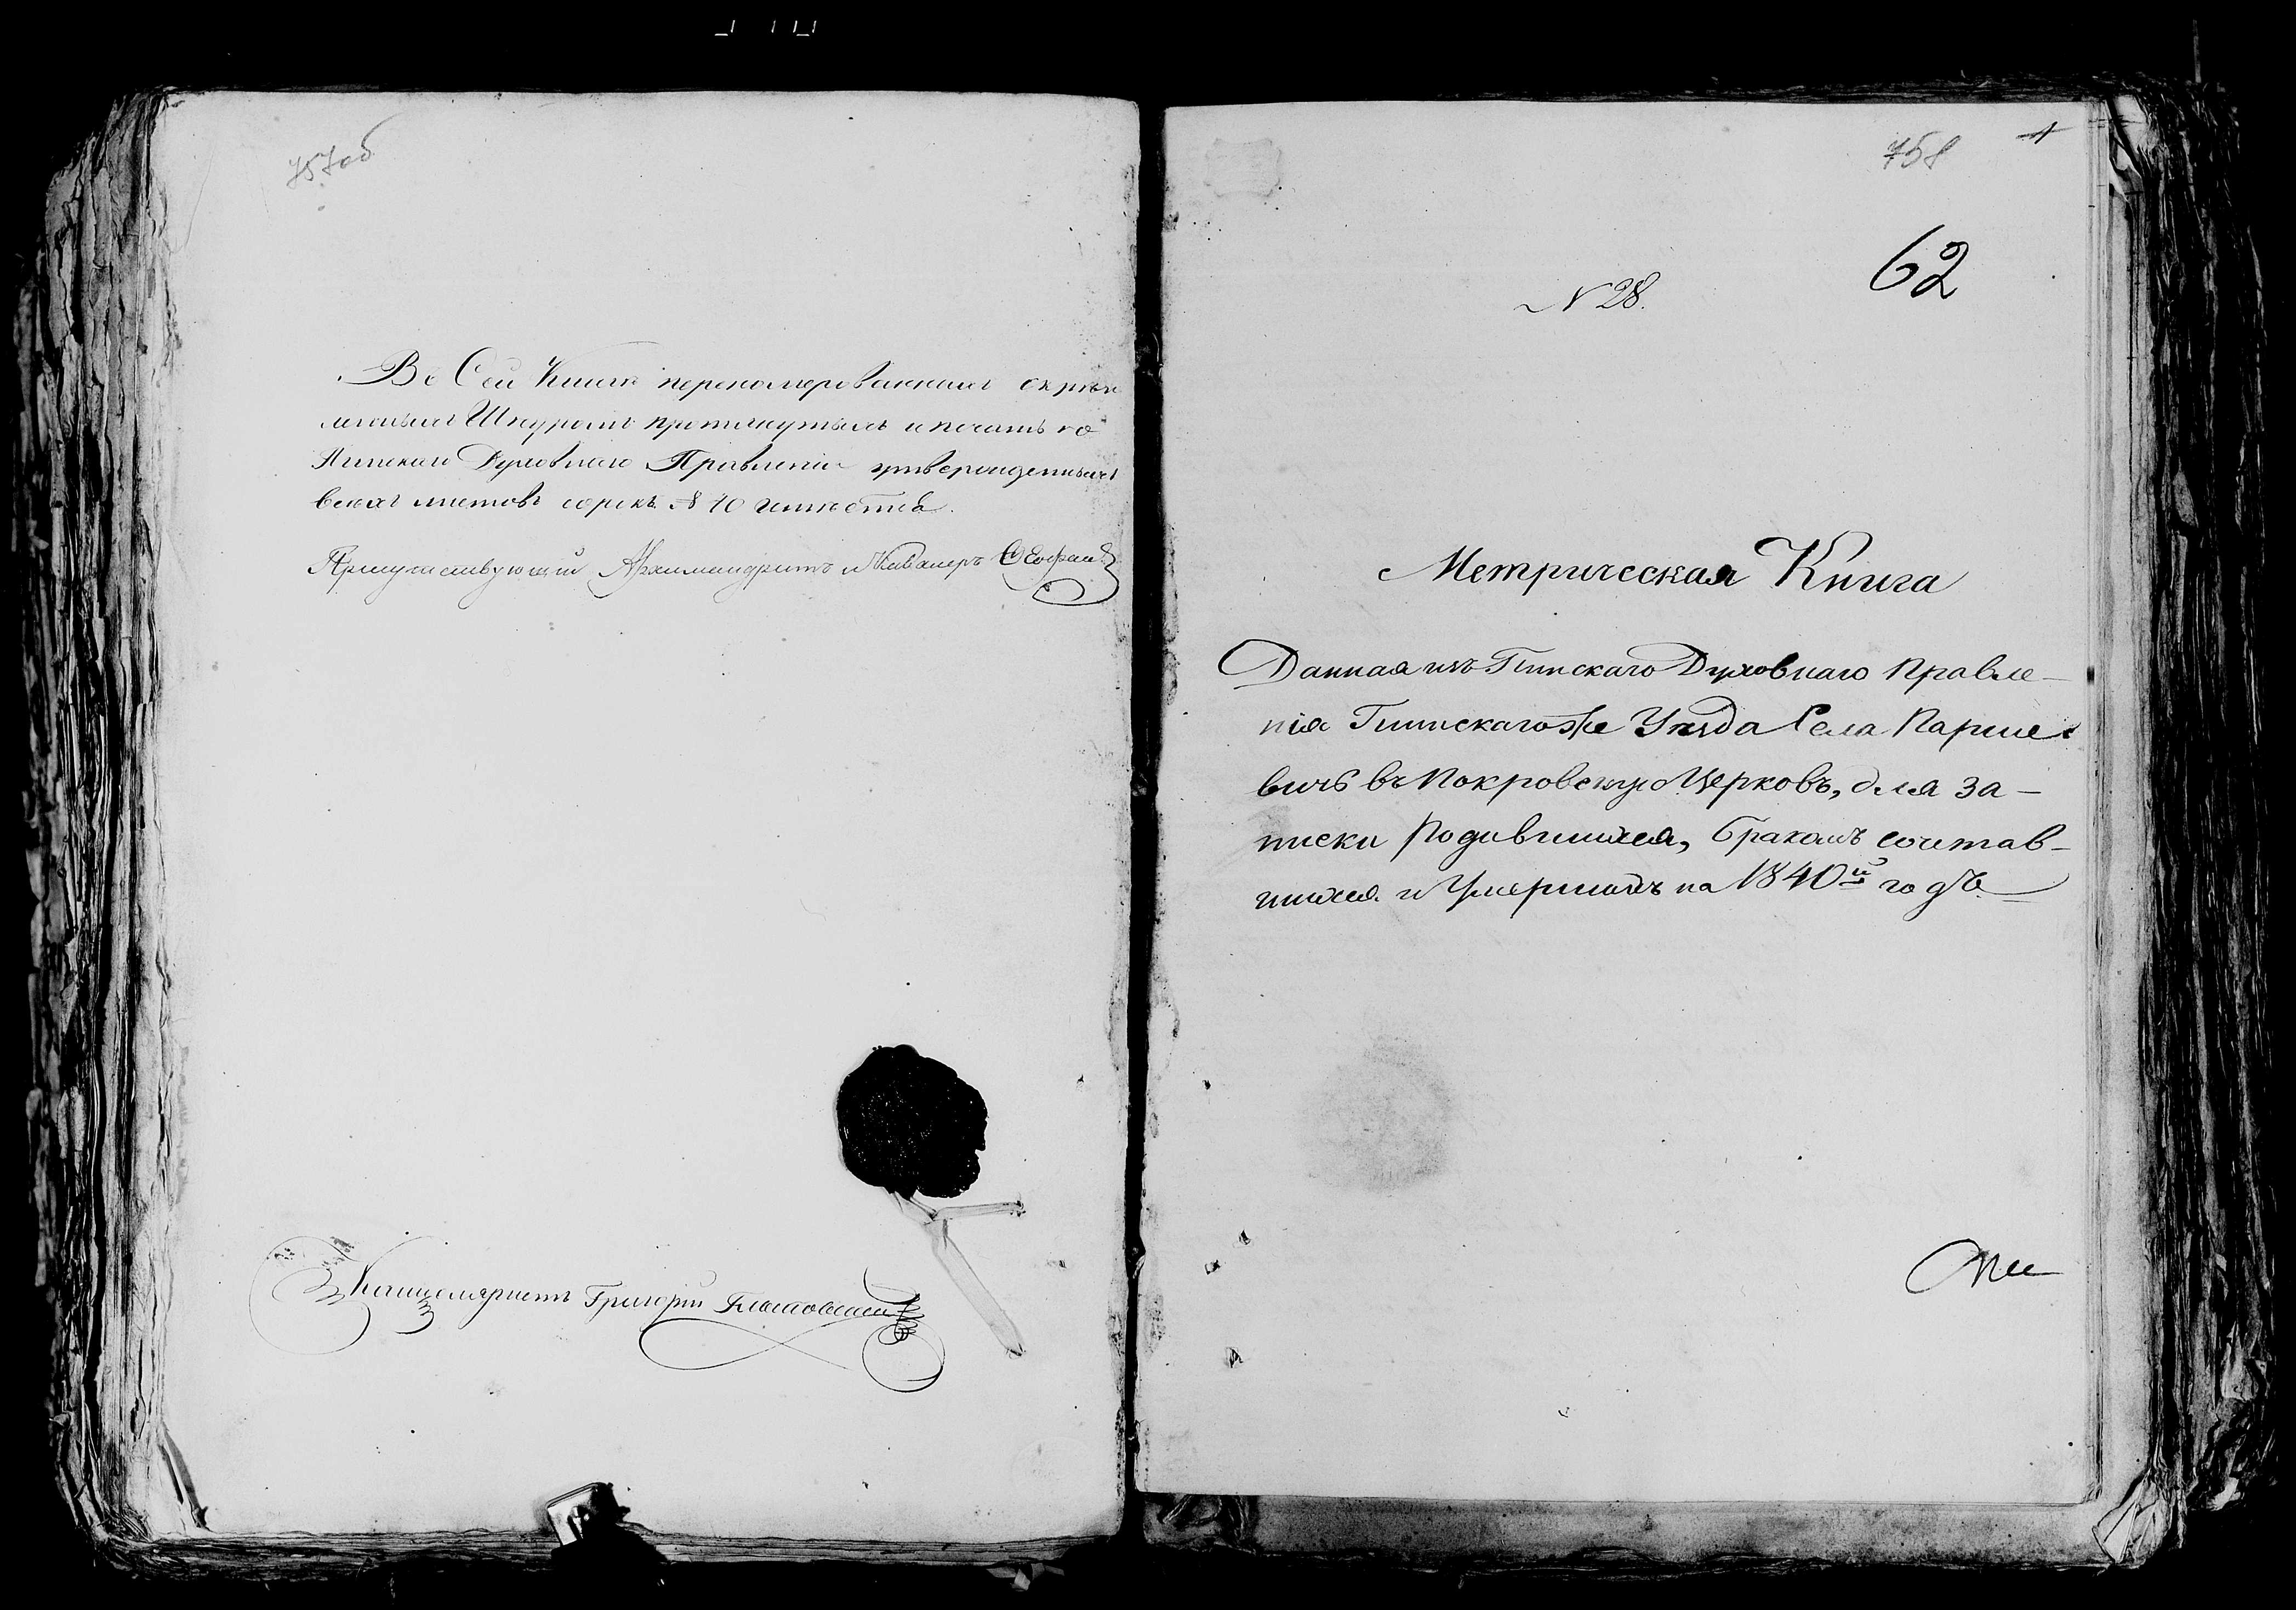 757 об
Въ Сей Книгѣ переномерованныхъ скрѣп
леныхъ Шнуромъ протянутыхъ и печатью
Пинскаго Духовнаго Правленія утвержденныхъ
всѣхъ листовъ сорокъ № 40 числомъ
Присутствующій Архимандритъ и Кавалеръ Ѳеофанъ
Канцеляристъ Григорій
758 1
62
N 28.
Метрическая Книга
Данная изъ Пинскаго Духовнаго Правле-
нія Пинскагоже Уѣзда Села Парше
вичъ въ Покровскую Церковь, для за-
писки Родившихся, бракомъ сочетав-
шихся и Умершихъ на 1840й годъ